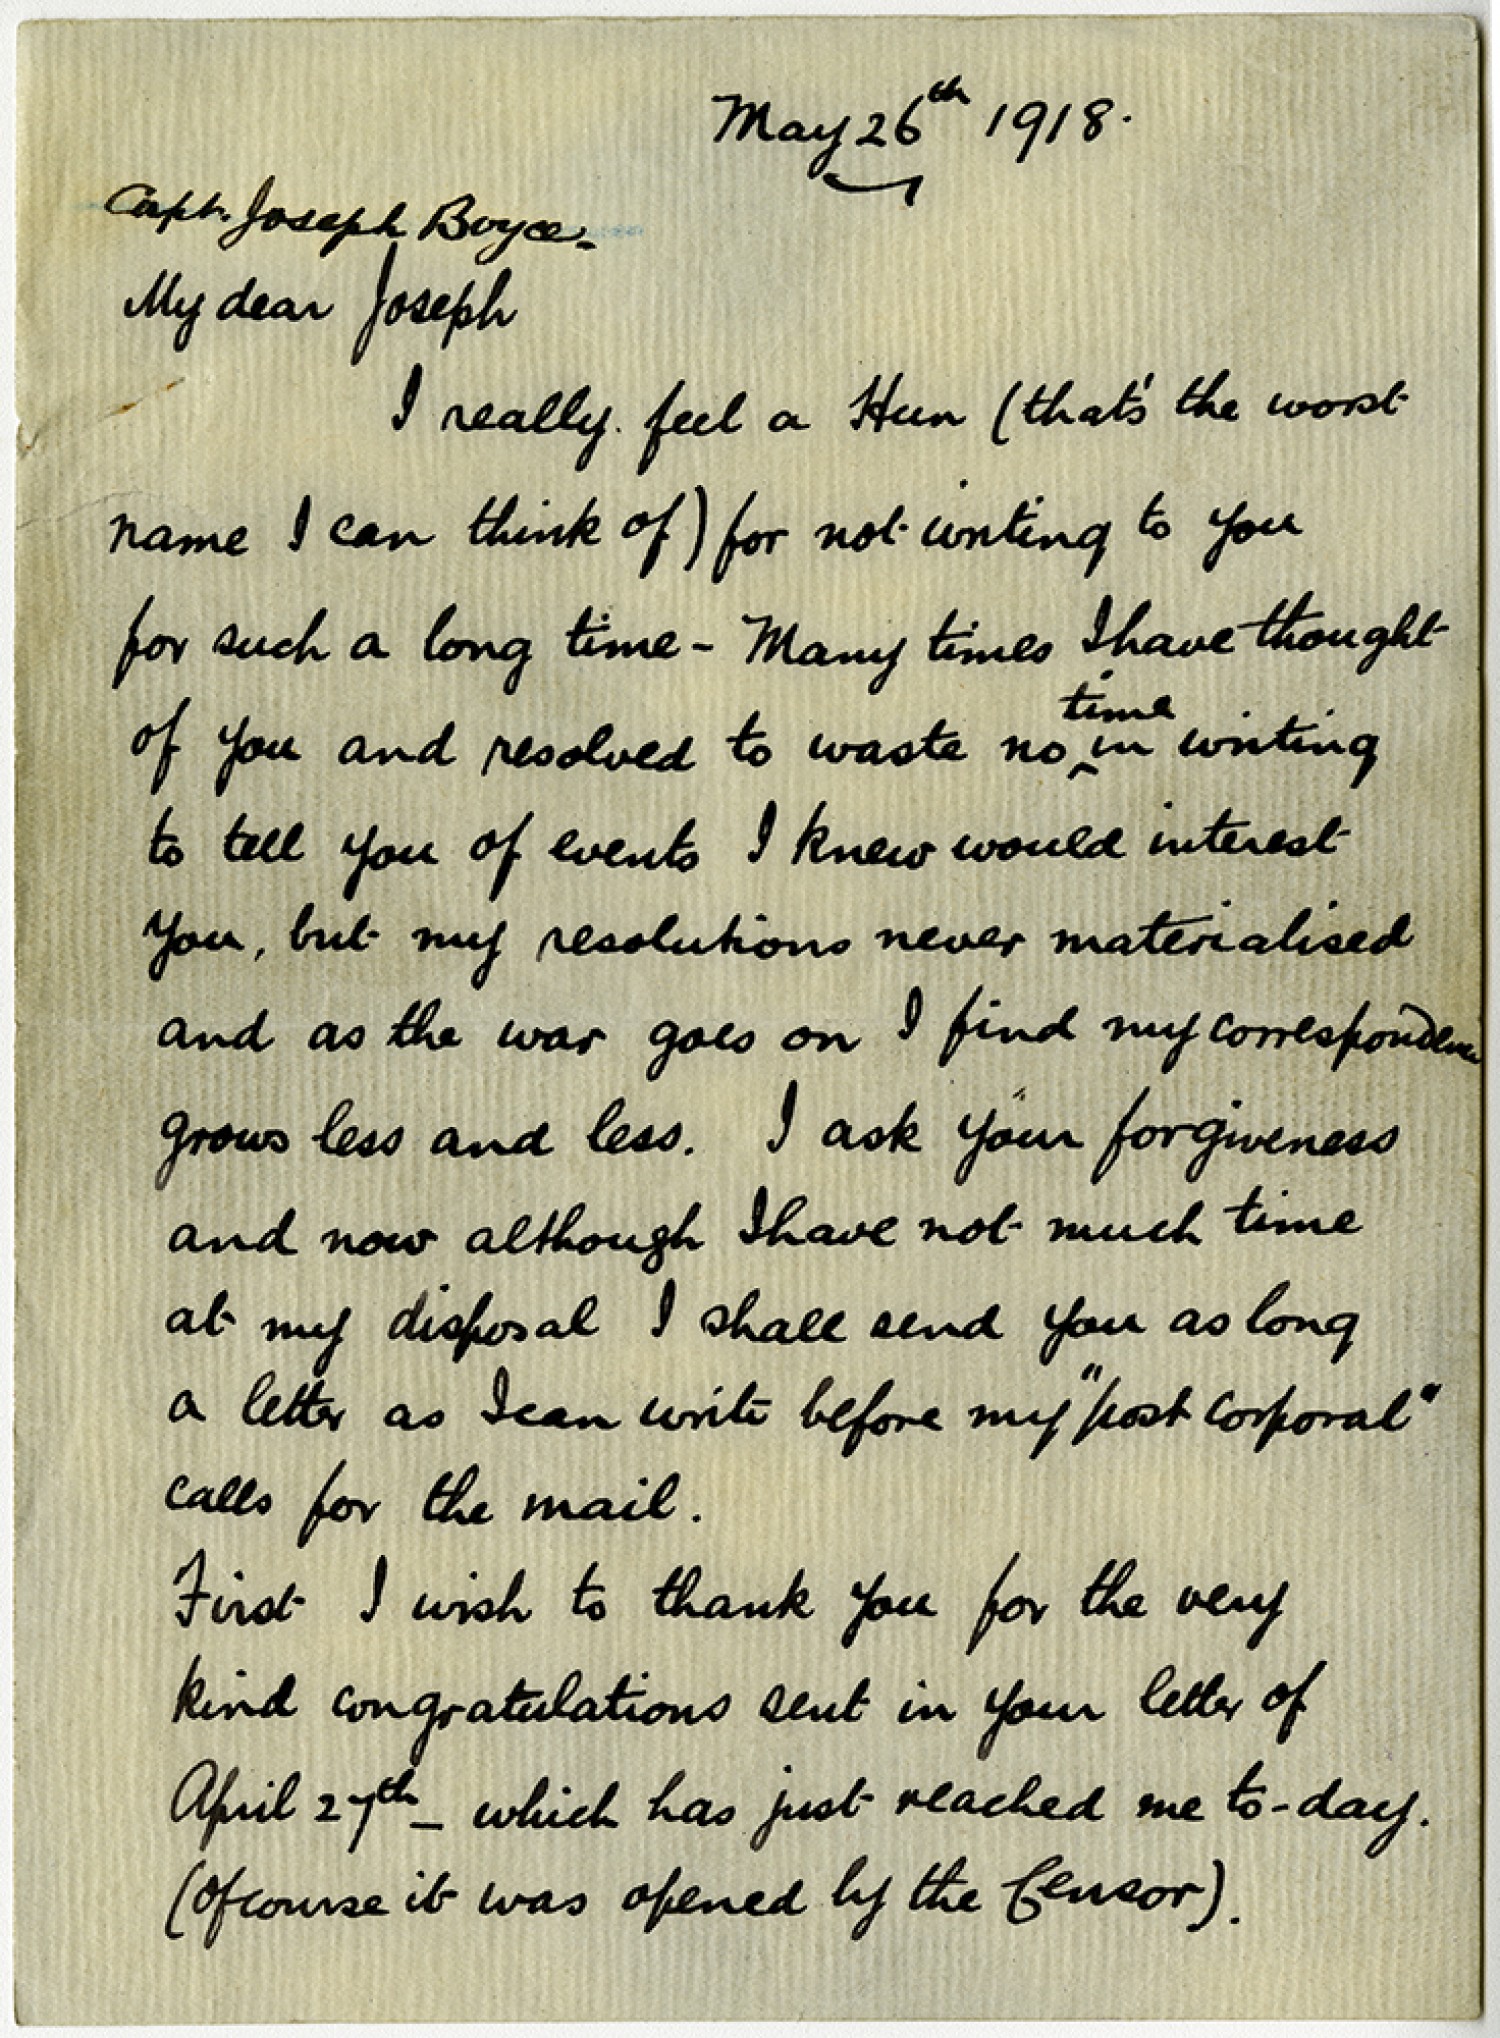 May 26th 1918.
Capt. Joseph Boyce.
My dear Joseph
I really feel a Hun (that's the worst
name I can think of) for not writing to you
for such a long time - Many times I have thought
time
of you and resolved to waste no in writing
to tell you of events I knew would interest
you, but my resolutions never materialised
and as the war goes on I find my correspondence
grows less and less. I ask your forgiveness
and now although I have not much time
at my disposal I shall send you as long
a letter as I can write before my "post corporal"
calls for the mail.
First I wish to thank you for the very
kind congratulations sent in your letter of
April 27th - which has just reached me to-day.
(Of course it was opened by the Censor).